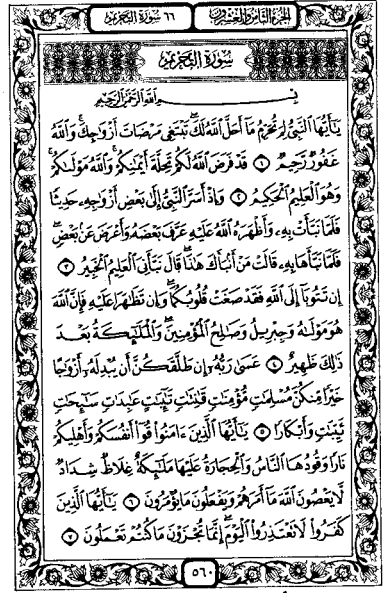 الجزء الثامن والعشرون ٦٦ سورة التحريم
سورة التحريم
بسم الله الرحمن الرحيم
يَٰٓأَيُّهَا ٱلنَّبِيُّ لِمَ تُحَرِّمُ مَآ أَحَلَّ ٱللَّهُ لَكَ ۖ تَبْتَغِى مَرْضَاتَ أَزْوَٰجِكَ ۚ وَٱللَّهُ
غَفُورٌ رَّحِيمٌ ١ قَدْ فَرَضَ ٱللَّهُ لَكُمْ تَحِلَّةَ أَيْمَٰنِكُمْ ۚ وَٱللَّهُ مَوْلَىٰكُمْ ۖ
وَهُوَ ٱلْعَلِيمُ ٱلْحَكِيمُ ٢ وَإِذْ أَسَرَّ ٱلنَّبِيُّ إِلَىٰ بَعْضِ أَزْوَٰجِهِۦ حَدِيثًا
فَلَمَّا نَبَّأَتْ بِهِۦ وَأَظْهَرَهُ ٱللَّهُ عَلَيْهِ عَرَّفَ بَعْضَهُۥ وَأَعْرَضَ عَنۢ بَعْضٍ ۖ
فَلَمَّا نَبَّأَهَا بِهِۦ قَالَتْ مَنْ أَنۢبَأَكَ هَٰذَا ۖ قَالَ نَبَّأَنِىَ ٱلْعَلِيمُ ٱلْخَبِيرُ ٣
إِن تَتُوبَآ إِلَى ٱللَّهِ فَقَدْ صَغَتْ قُلُوبُكُمَا ۖ وَإِن تَظَٰهَرَا عَلَيْهِ فَإِنَّ ٱللَّهَ
هُوَ مَوْلَىٰهُ وَجِبْرِيلُ وَصَٰلِحُ ٱلْمُؤْمِنِينَ ۖ وَٱلْمَلَٰٓئِكَةُ بَعْدَ
ذَٰلِكَ ظَهِيرٌ ٤ عَسَىٰ رَبُّهُۥٓ إِن طَلَّقَكُنَّ أَن يُبْدِلَهُۥٓ أَزْوَٰجًا
خَيْرًا مِّنكُنَّ مُسْلِمَٰتٍ مُّؤْمِنَٰتٍ قَٰنِتَٰتٍ تَٰٓئِبَٰتٍ عَٰبِدَٰتٍ سَٰٓئِحَٰتٍ
ثَيِّبَٰتٍ وَأَبْكَارًا ٥ يَٰٓأَيُّهَا ٱلَّذِينَ ءَامَنُوا۟ قُوٓا۟ أَنفُسَكُمْ وَأَهْلِيكُمْ
نَارًا وَقُودُهَا ٱلنَّاسُ وَٱلْحِجَارَةُ عَلَيْهَا مَلَٰٓئِكَةٌ غِلَاظٌ شِدَادٌ
لَّا يَعْصُونَ ٱللَّهَ مَآ أَمَرَهُمْ وَيَفْعَلُونَ مَا يُؤْمَرُونَ ٦ يَٰٓأَيُّهَا ٱلَّذِينَ
كَفَرُوا۟ لَا تَعْتَذِرُوا۟ ٱلْيَوْمَ ۖ إِنَّمَا تُجْزَوْنَ مَا كُنتُمْ تَعْمَلُونَ ٧
٥٦٠